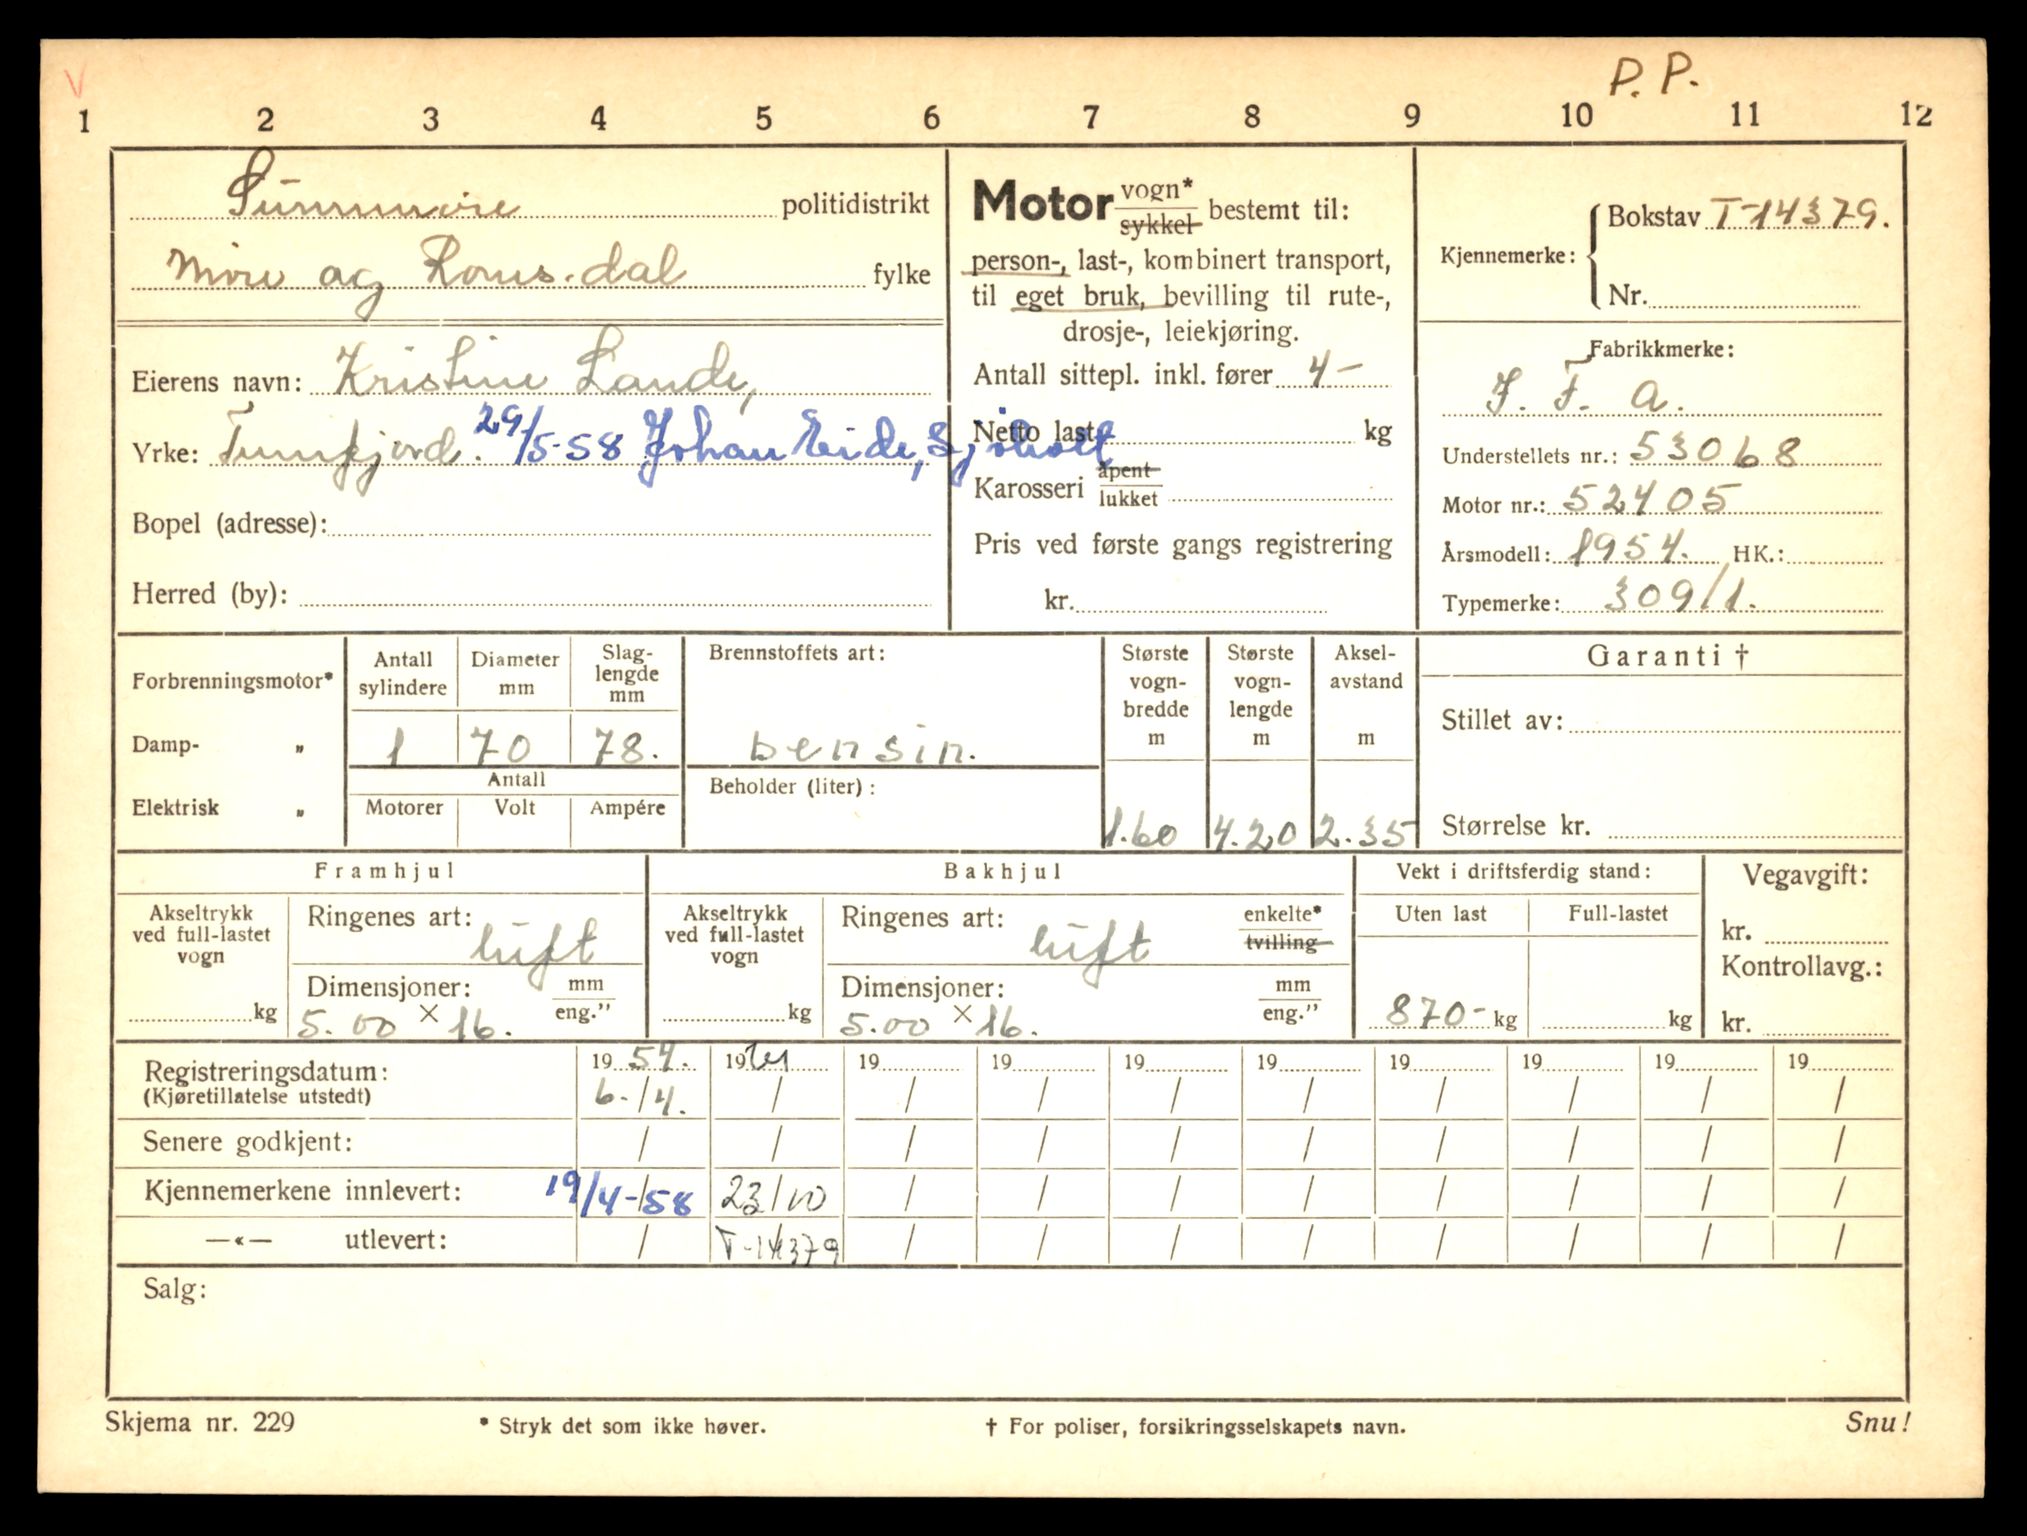 V
P. P.
1 2 3 4 5 6 7 8 9 10 11 12
Sunnmøre politidistrikt
Møre og Romsdal fylke
Eierens navn: Kristine Lande,
Yrke: Tennfjord. 29/5-58 Johan Eide, Sjøholt
Bopel (adresse):
Herred (by):
Motor vogn* sykkel bestemt til:
person-, last-, kombinert transport,
til eget bruk, bevilling til rute-,
drosje-, leiekjøring.
Antall sittepl. inkl. fører 4-
Netto last kg
Karosseri åpent lukket
Pris ved første gangs registrering
kr.
Kjennemerke: Bokstav T-14379.
Nr.
Fabrikkmerke:
I. F. a.
Understellets nr.: 53068
Motor nr.: 52405
Årsmodell: 1954. HK.:
Typemerke: 309/1.
Forbrenningsmotor*
Damp- „
Elektrisk „
Antall sylindere
Diameter mm
Slag-
lengde
mm
1 70 78.
Antall
Motorer Volt Ampére
Brennstoffets art:
bensin.
Beholder (liter):
Største
vogn-
bredde
m
1.60
Største
vogn-
lengde
m
4.20
Aksel-
avstand
m
2.35
Garanti †
Stillet av:
Størrelse kr.
Framhjul
Akseltrykk
ved full-lastet
vogn
kg
Ringenes art: luft
Dimensjoner: mm
5.00 × 16. eng."
Bakhjul
Akseltrykk
ved full-lastet
vogn
kg
Ringenes art: luft enkelte* tvilling
Dimensjoner: mm
5.00 × 16. eng."
Vekt i driftsferdig stand:
Uten last Full-lastet
870- kg kg
Vegavgift:
kr.
Kontrollavg.:
kr.
Registreringsdatum: 19 54. 19 19 19 19 19 19 19 19 19
(Kjøretillatelse utstedt) 6./4. / / / / / / / / /
Senere godkjent: / / / / / / / / / /
Kjennemerkene innlevert: 19/4-58 23/10 / / / / / / / /
—«— utlevert: / T-14379 / / / / / / / /
Salg:
Skjema nr. 229 * Stryk det som ikke høver. † For poliser, forsikringsselskapets navn. Snu!